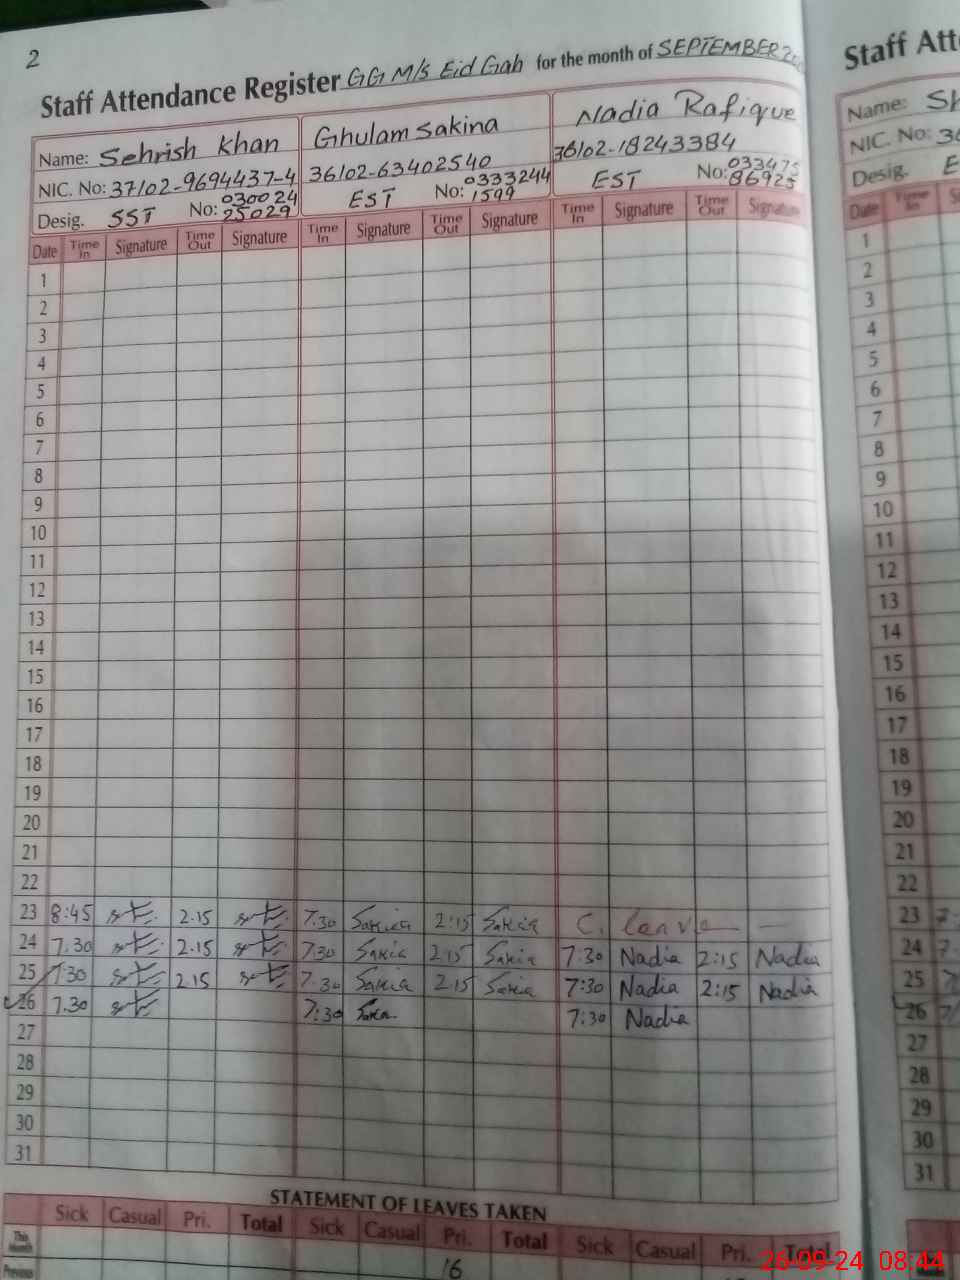 2
Staff Attendance Register GG M/s Eid Gah for the month of SEPTEMBER
Name: Sehrish Khan Ghulam Sakina Nadia Rafique
NIC. No: 37102-9694437-4 36102-63402540 36102-18243384
Desig. SST No: 030024 25029 EST No: 0333244 1599 EST No: 033475 86925
Date Time In Signature Time Out Signature Time In Signature Time Out Signature Time In Signature Time Out Signature
1
2
3
4
5
6
7
8
9
10
11
12
13
14
15
16
17
18
19
20
21
22
23 8:45 2.15 7.30 Sakina 2:15 Sakina C. leave
24 7.30 2.15 7:30 Sakina 2.15 Sakina 7:30 Nadia 2:15 Nadia
25 7.30 2.15 7.30 Sakina 2.15 Sakina 7:30 Nadia 2:15 Nadia
26 7.30 7:30 7:30 Nadia
27
28
29
30
31
STATEMENT OF LEAVES TAKEN
Sick Casual Pri. Total Sick Casual Pri. Total Sick Casual Pri. Total
This Month
Previous 16
Staff Att
Name: Sh
NIC. No: 36
Desig. E
Date Time In
1
2
3
4
5
6
7
8
9
10
11
12
13
14
15
16
17
18
19
20
21
22
23
24
25
26
27
28
29
30
31
26-09-24 08:44